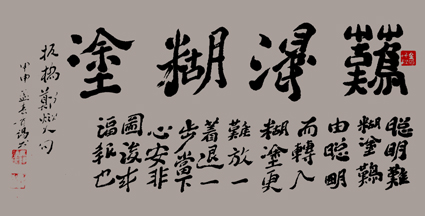 難得糊塗
聰明難
糊塗難
由聰明
而轉入
糊塗更
難放一
着退一
步當下
心安非
圖後来
福報也
板橋鄭燮
句
甲申